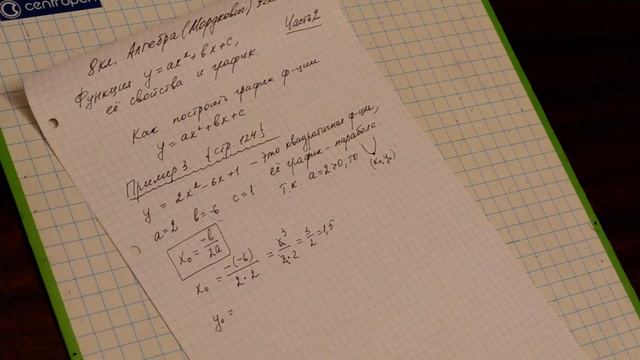 centropen
8кл. Алгебра (Мордкович)
Часть 2
Функция y=ax²+bx+c,
её свойства и график.
Как построить график ф-ции
y=ax²+bx+c
Пример 3 {стр. 124}
y = 2x²-6x+1 - это квадратичная ф-ция,
её график - парабола
a=2 b=-6 c=1 Т.к. a=2>0, то (x₀,y₀)
x₀ = -b/2a
x₀ = -(-6)/2·2 = 6/2·2 = 3/2 = 1,5
y₀ =